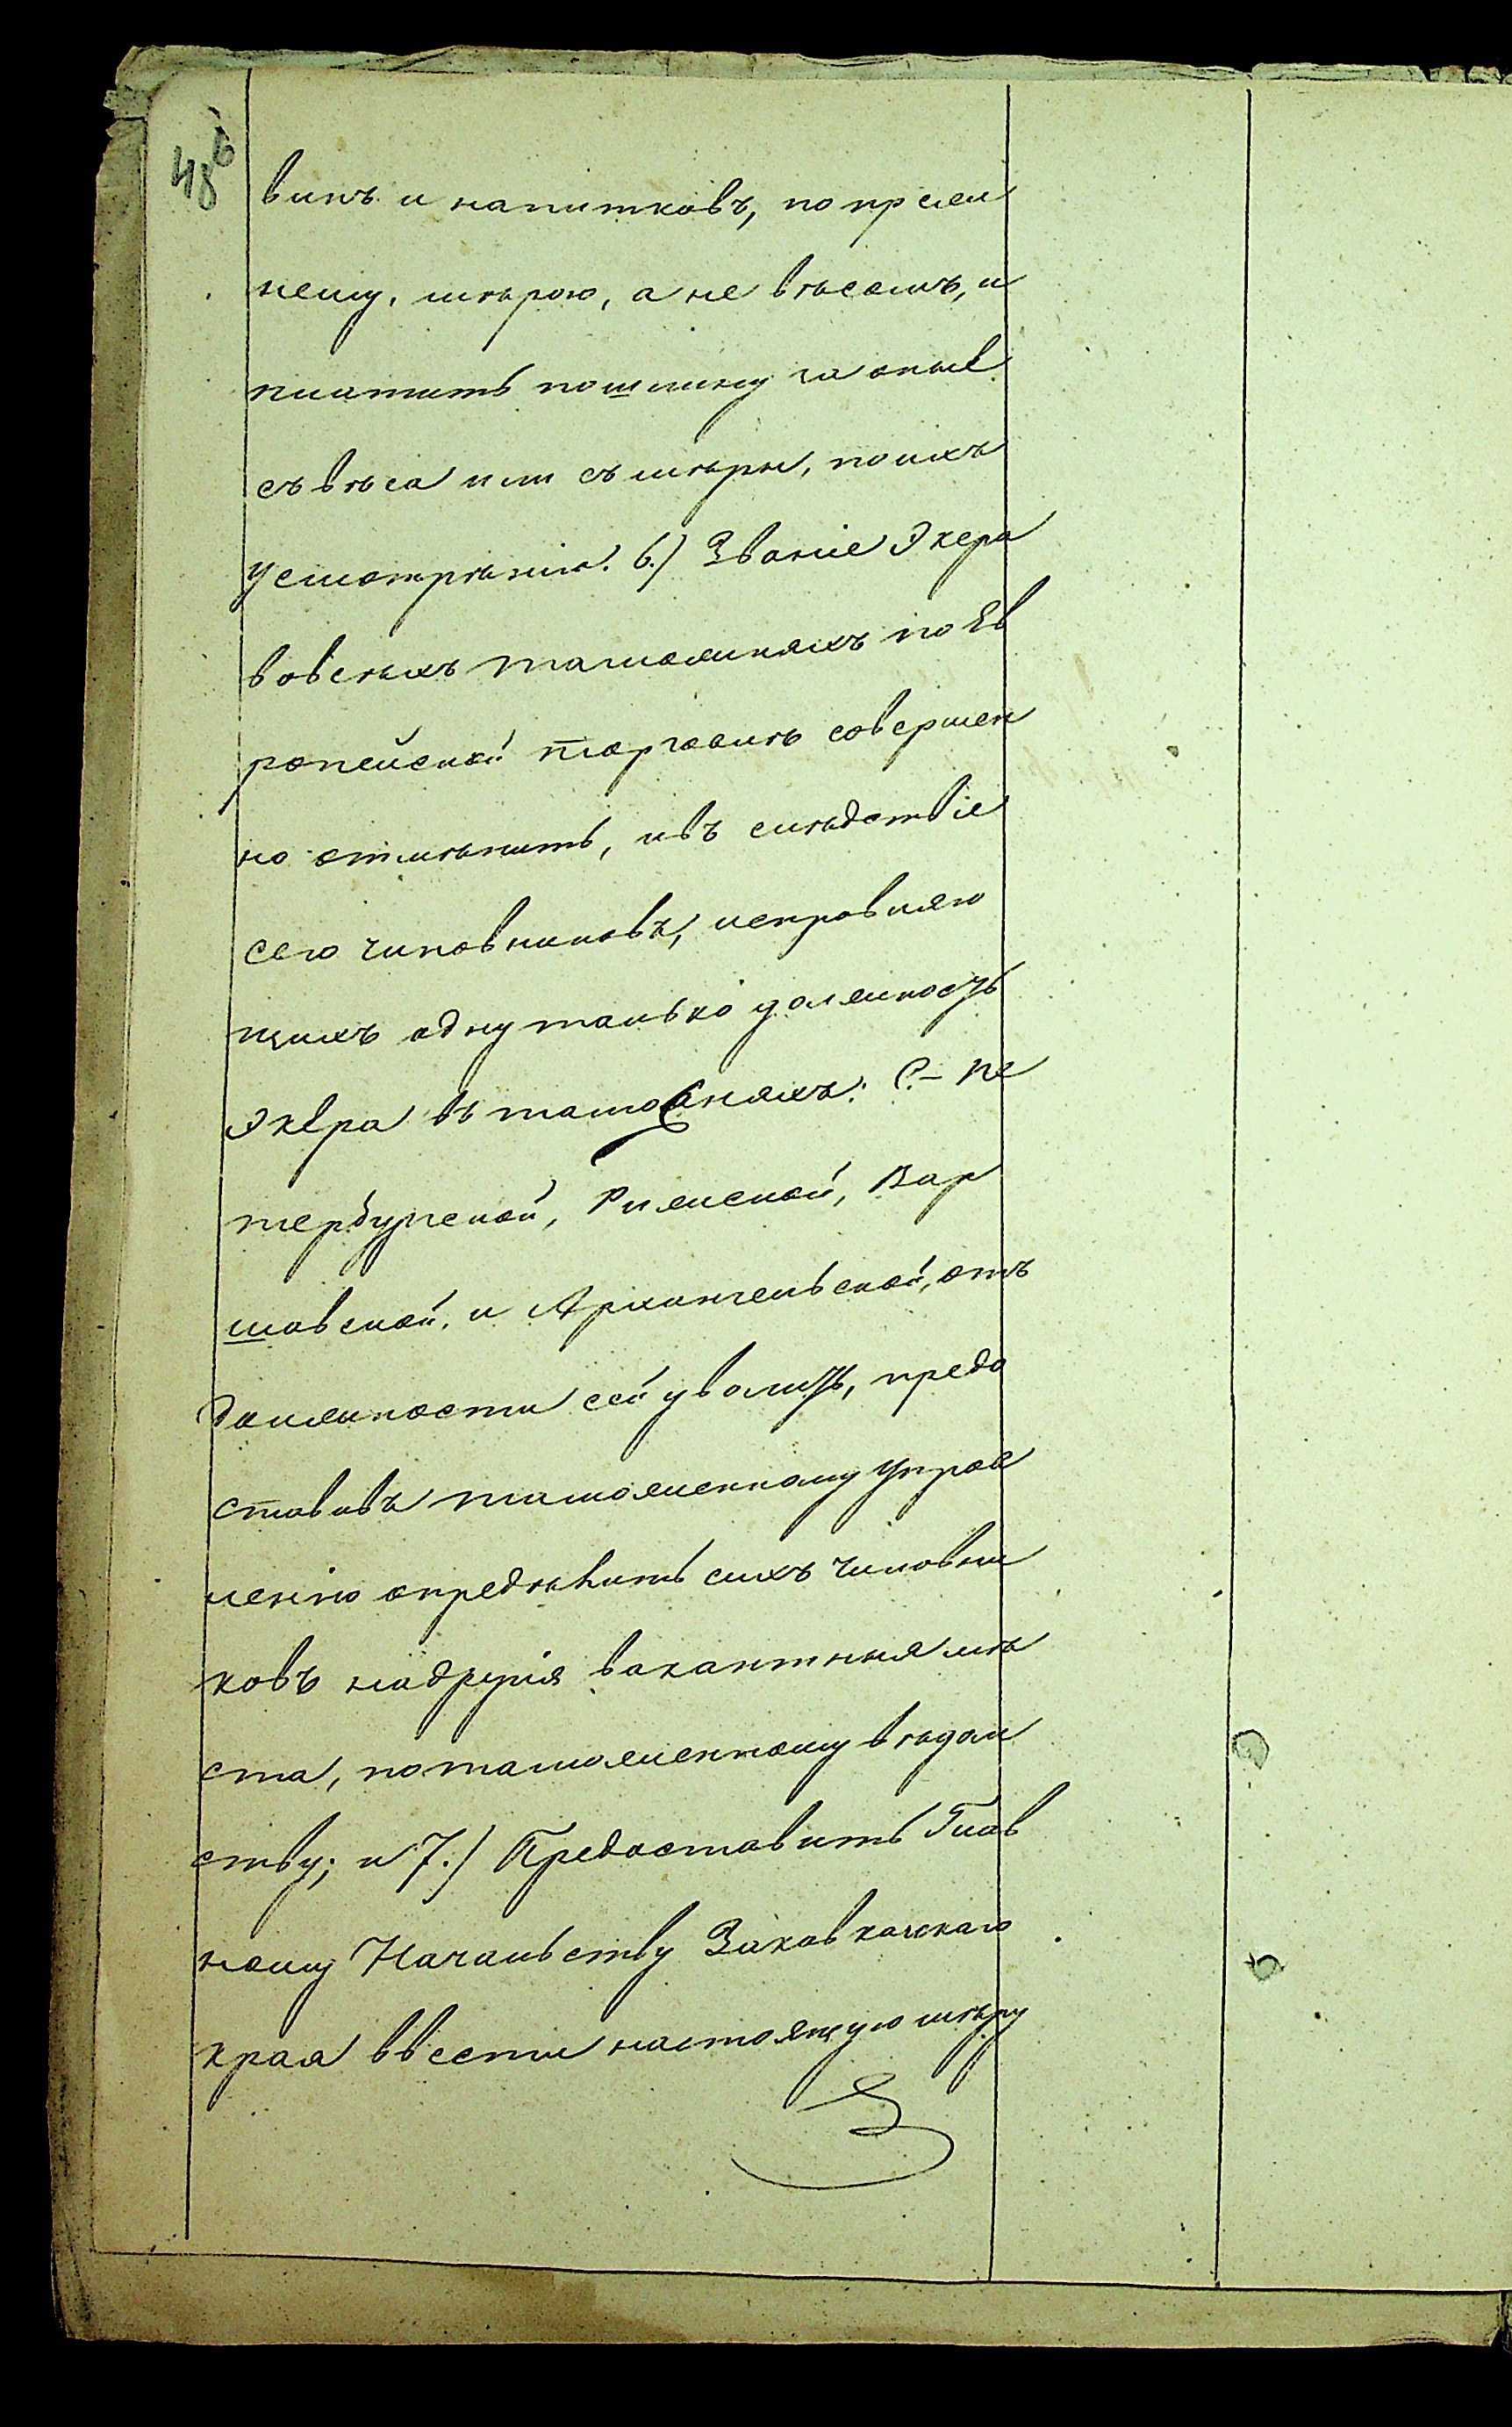 48б
винъ и напитковъ, по преж
нему, мѣрою, а не вѣсомъ, и
платить пошлину за оные
съ вѣса или съ мѣры, по ихъ
усмотрѣнію. 6.) Званіе Экера
во всѣхъ таможняхъ по Ев
ропейской торговлѣ совершен
но отмѣнить, и въ слѣдствіе
сего чиновниковъ, исправляю
щихъ одну только должность
Экера въ таможняхъ: С.-Пе
тербургской, Рижской, Вар
шавской, и Архангельской, отъ
должности сей уволить, предо
ставивъ таможенному управ
ленію опредѣлить сихъ чиновни
ковъ на другія вакантныя мѣ
ста, по таможенному вѣдом
ству; и 7.) Предоставить Глав
ному Начальству Закавказскаго
края ввести настоящую мѣру